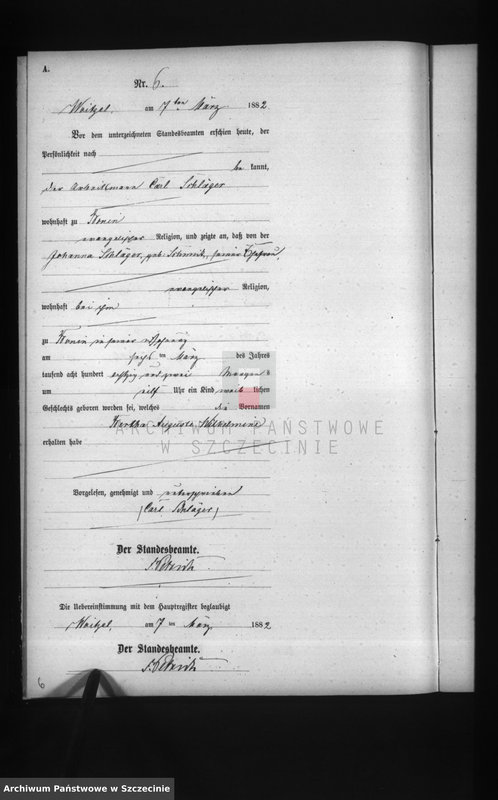 A.
Nr. 6.
Weitzel, am 7ten März 1882
Vor dem unterzeichneten Standesbeamten erschien heute, der
Persönlichkeit nach
be kannt,
der Arbeitsmann Carl Schläger
wohnhaft zu Honin
evangelischer Religion, und zeigte an, daß von der
Johanna Schläger, geb. seiner Ehefrau
evangelischer Religion,
wohnhaft bei ihm
zu Honin in seiner Wohnung
am sechsten März des Jahres
tausend acht hundert achtzig und zwei Morgens
um Uhr ein Kind weiblichen
Geschlechts geboren worden sei, welches die Vornamen
Bertha Auguste Wilhelmine
erhalten habe
Vorgelesen, genehmigt und unterschrieben
(Carl Schläger)
Der Standesbeamte.
Die Uebereinstimmung mit dem Hauptregister beglaubigt
Weitzel, am 7ten März 1882
Der Standesbeamte.
6
ARCHIWUM PAŃSTWOWE
W SZCZECINIE
Archiwum Państwowe w Szczecinie